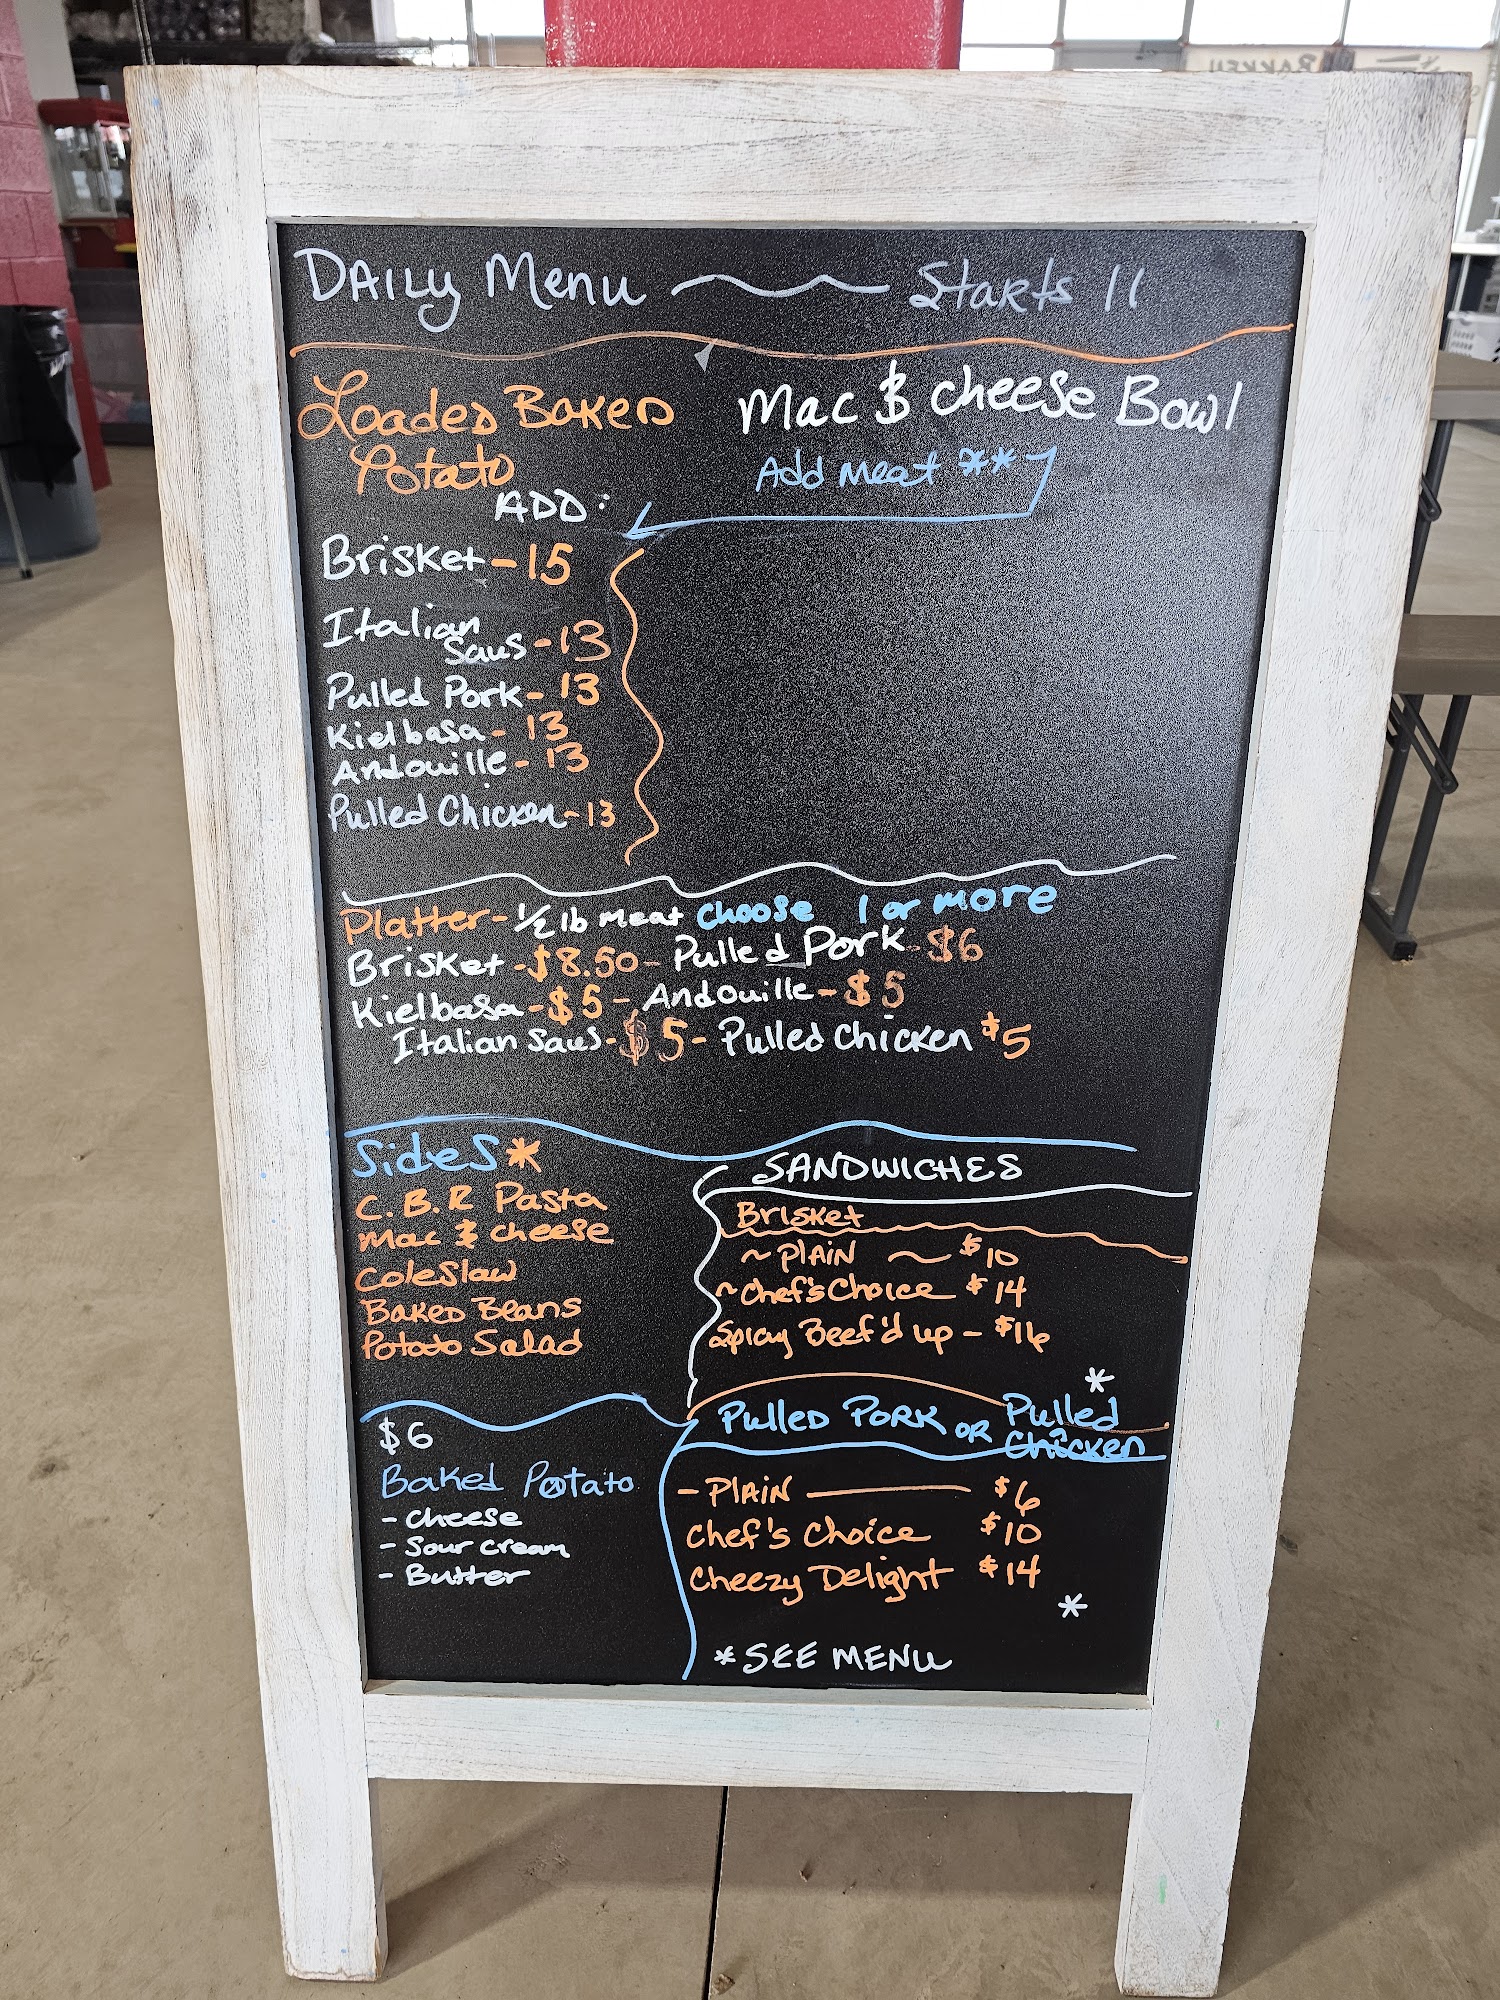 Daily Menu ~ Starts 11
Loaded Baked
Potato
ADD:
Brisket - 15
Italian
Saus - 13
Pulled Pork - 13
Kielbasa - 13
Andouille - 13
Pulled Chicken - 13
Mac & cheese Bowl
Add meat **
Platter - 1/2 lb meat choose 1 or more
Brisket - $8.50 - Pulled Pork - $6
Kielbasa - $5 - Andouille - $5
Italian Saus - $5 - Pulled Chicken $5
Sides *
C.B.R Pasta
Mac & cheese
Coleslaw
Baked Beans
Potato Salad
$6
Baked Potato
- cheese
- Sour cream
- Butter
SANDWICHES
Brisket
~ PLAIN ~ $10
~ Chef's Choice $14
Spicy Beef'd up - $16
*
Pulled Pork or Pulled
Chicken
- PLAIN — $6
Chef's Choice $10
Cheezy Delight $14
*
* SEE MENU